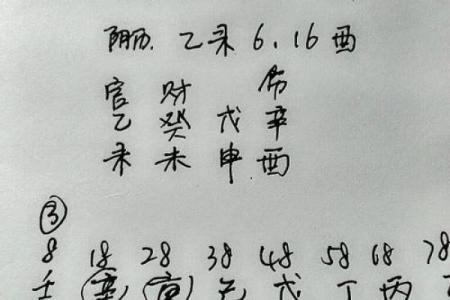 阴历. 乙未 6.16 酉
官 财 伤
乙 癸 戊 辛
未 未 申 酉
③
8 18 28 38 48 58 68 78
壬 辛 庚 己 戊 丁 丙